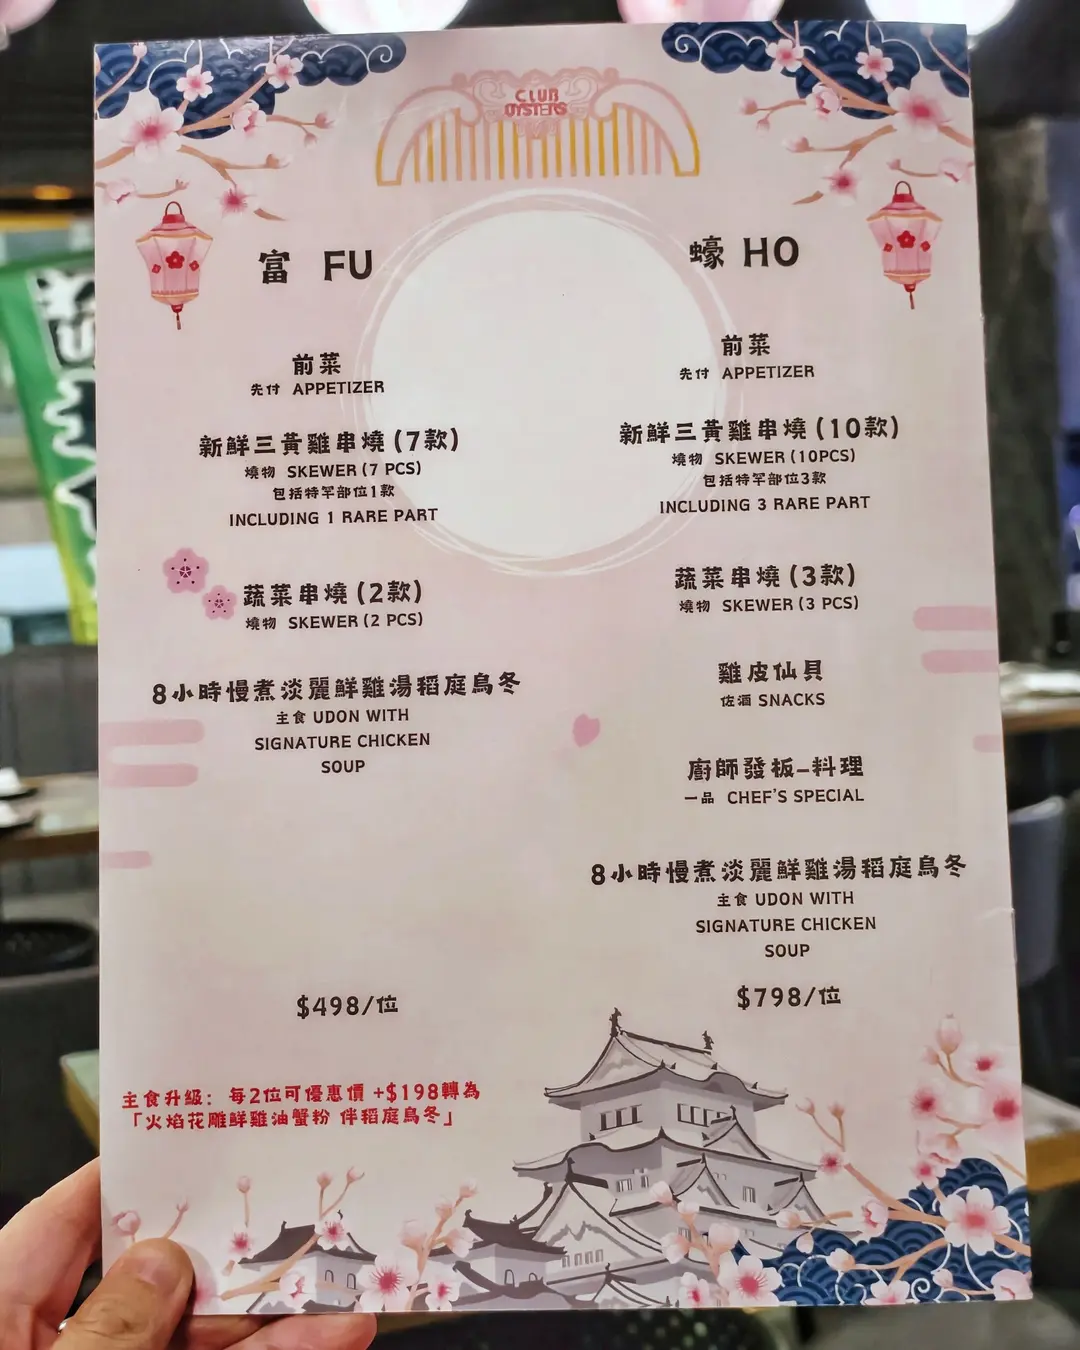 CLUB
OYSTERS
富 FU
前菜
先付 APPETIZER
新鮮三黃雞串燒(7款)
燒物 SKEWER (7 PCS)
包括特罕部位1款
INCLUDING 1 RARE PART
蔬菜串燒(2款)
燒物 SKEWER (2 PCS)
8小時慢煮淡麗鮮雞湯稻庭烏冬
主食 UDON WITH
SIGNATURE CHICKEN
SOUP
$498/位
主食升級: 每2位可優惠價 +$198轉為
「火焰花雕鮮雞油蟹粉 伴稻庭烏冬」
蠔 HO
前菜
先付 APPETIZER
新鮮三黃雞串燒(10款)
燒物 SKEWER (10PCS)
包括特罕部位3款
INCLUDING 3 RARE PART
蔬菜串燒(3款)
燒物 SKEWER (3 PCS)
雞皮仙貝
佐酒 SNACKS
廚師發板–料理
一品 CHEF'S SPECIAL
8小時慢煮淡麗鮮雞湯稻庭烏冬
主食 UDON WITH
SIGNATURE CHICKEN
SOUP
$798/位